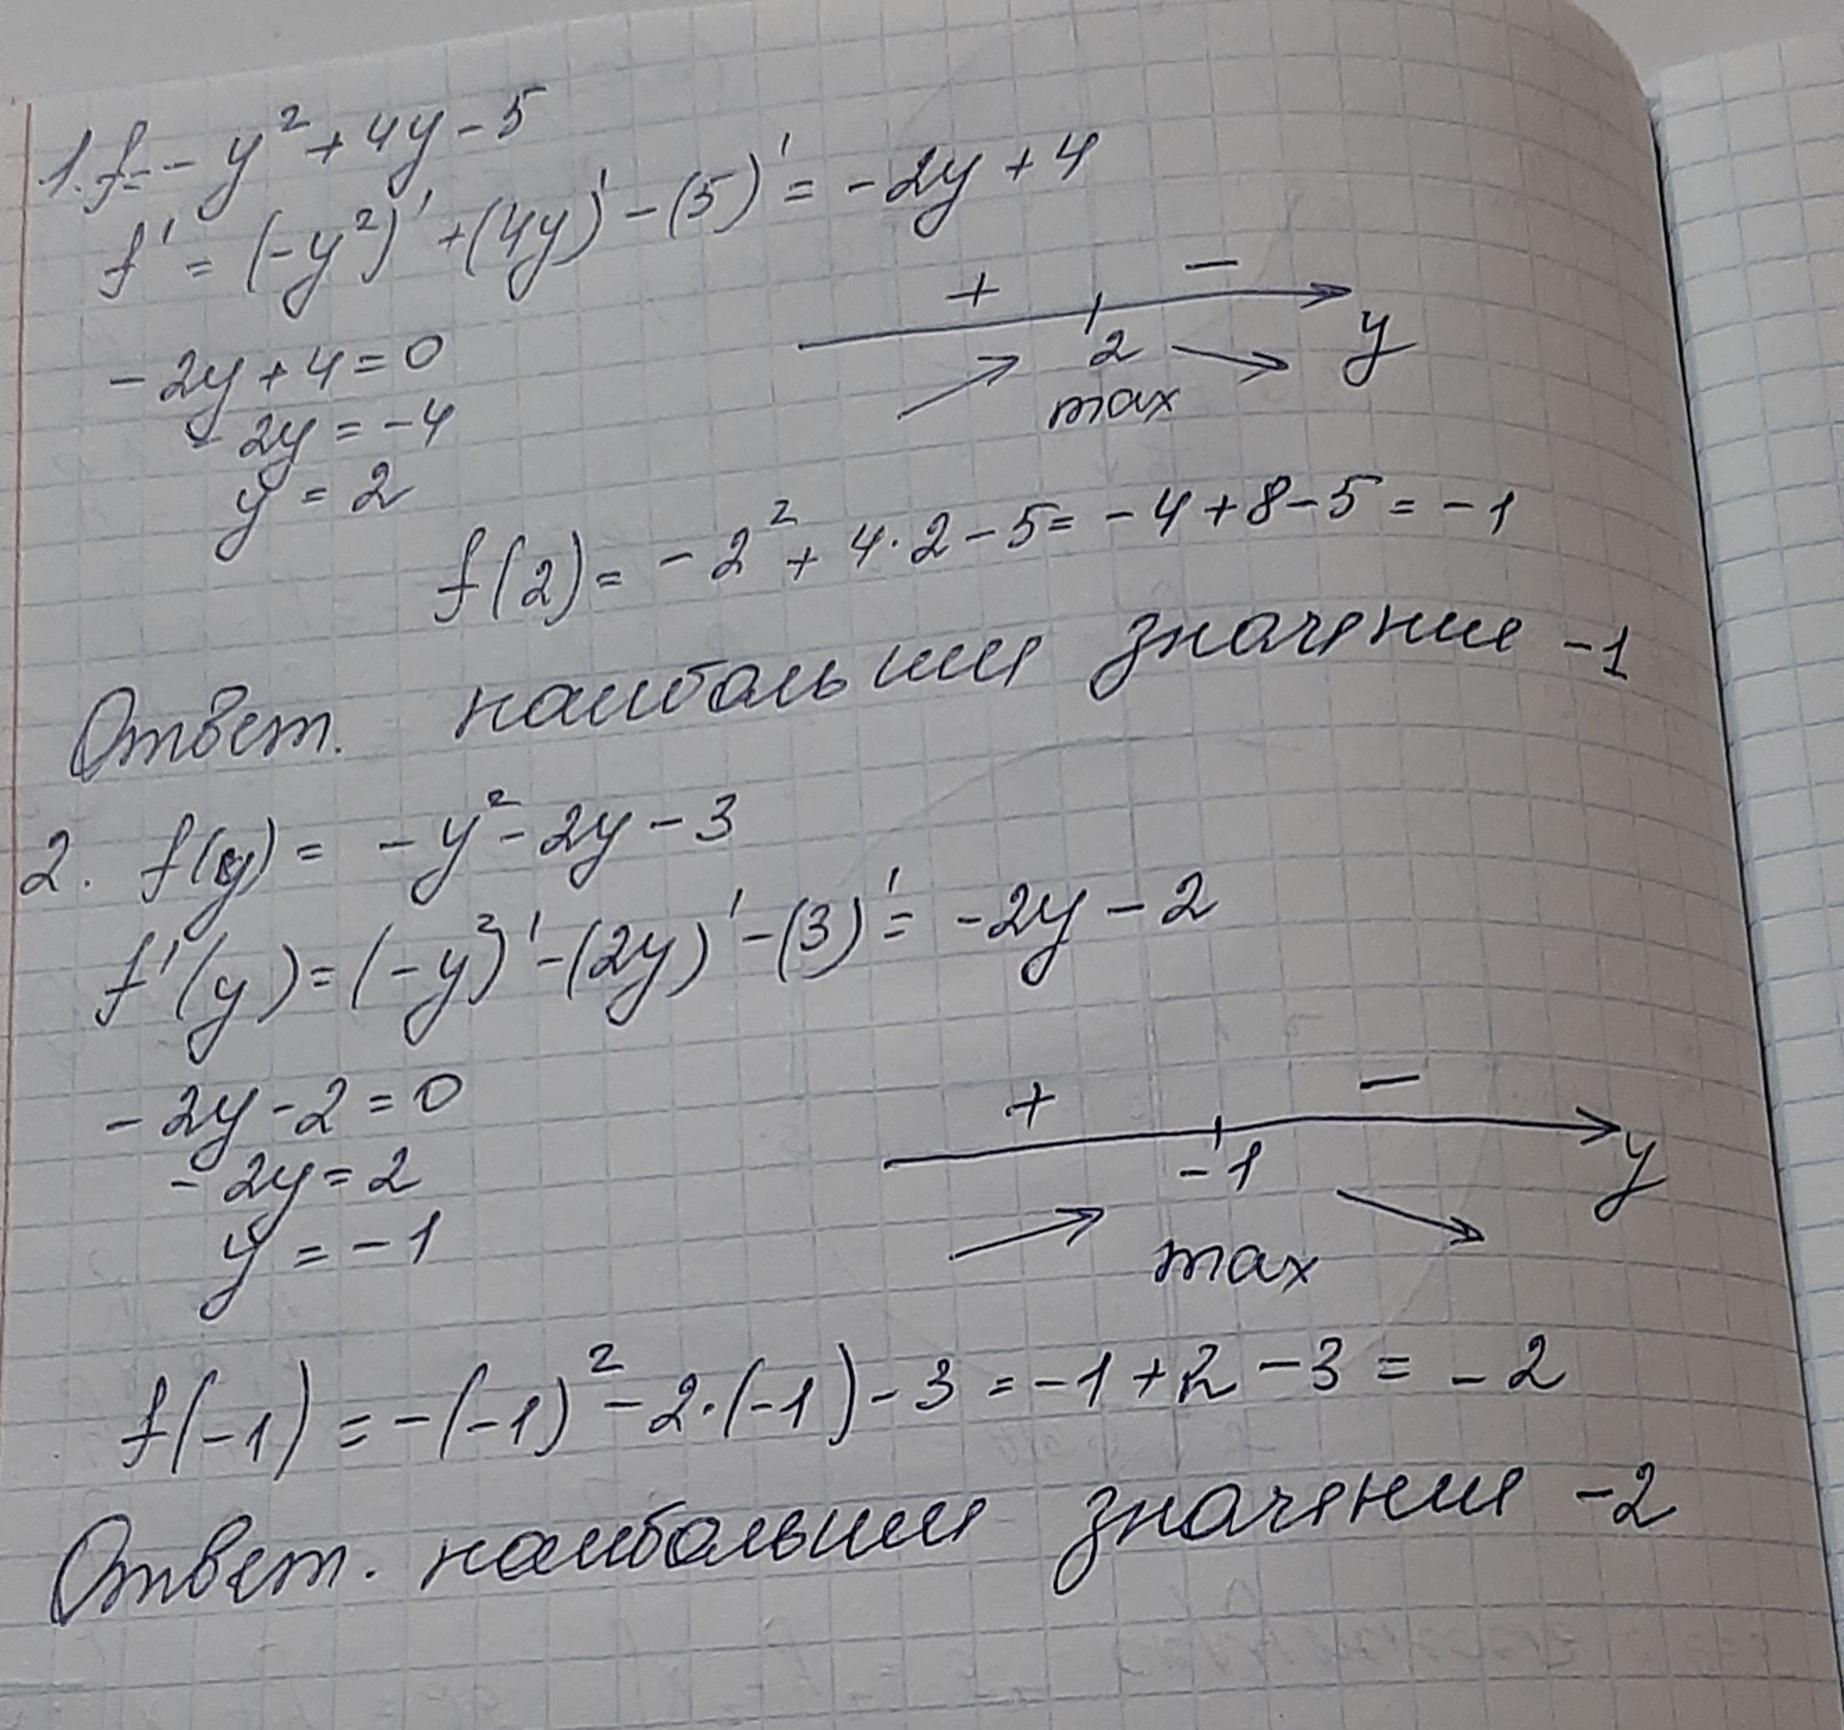 1. f = - y² + 4y - 5
f' = (-y²)' + (4y)' - (5)' = -2y + 4
+ -
- 2y + 4 = 0
2 y
- 2y = -4
max
y = 2
f(2) = - 2² + 4·2 - 5 = - 4 + 8 - 5 = - 1
Ответ. наибольшее значение -1
2. f(y) = - y² - 2y - 3
f'(y) = (-y²)' - (2y)' - (3)' = -2y - 2
+ -
- 2y - 2 = 0
-1 y
- 2y = 2
max
y = -1
f(-1) = -(-1)² - 2·(-1) - 3 = -1 + 2 - 3 = - 2
Ответ. наибольшее значение -2